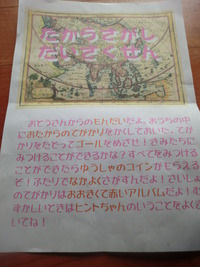 たからさがし
だいさくせん
おとうさんからのもんだいだよ。おうちの中
におたからのてがかりをかくしておいた。てが
かりをたどってゴールをめざせ！きみたちに
みつけることができるかな？すべてをみつける
ことができたらゆうしゃのコインがもらえる
ぞ！ふたりでなかよくさがすんだよ！さいしょ
のてがかりはおおきくて赤いアルバムだよ！む
ずかしいときはヒントちゃんのいうことをよくき
いてね！